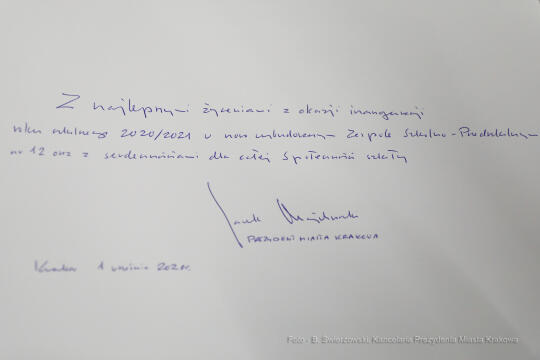 Z najlepszymi życzeniami z okazji inauguracji
roku szkolnego 2020/2021 w nowo wybudowanym Zespole Szkolno-Przedszkolnym
nr 12 oraz z serdecznościami dla całej Społeczności szkoły
Jacek Majchrowski
PREZYDENT MIASTA KRAKOWA
Kraków 1 września 2020r.
Foto - B. Świerzowski, Kancelaria Prezydenta Miasta Krakowa